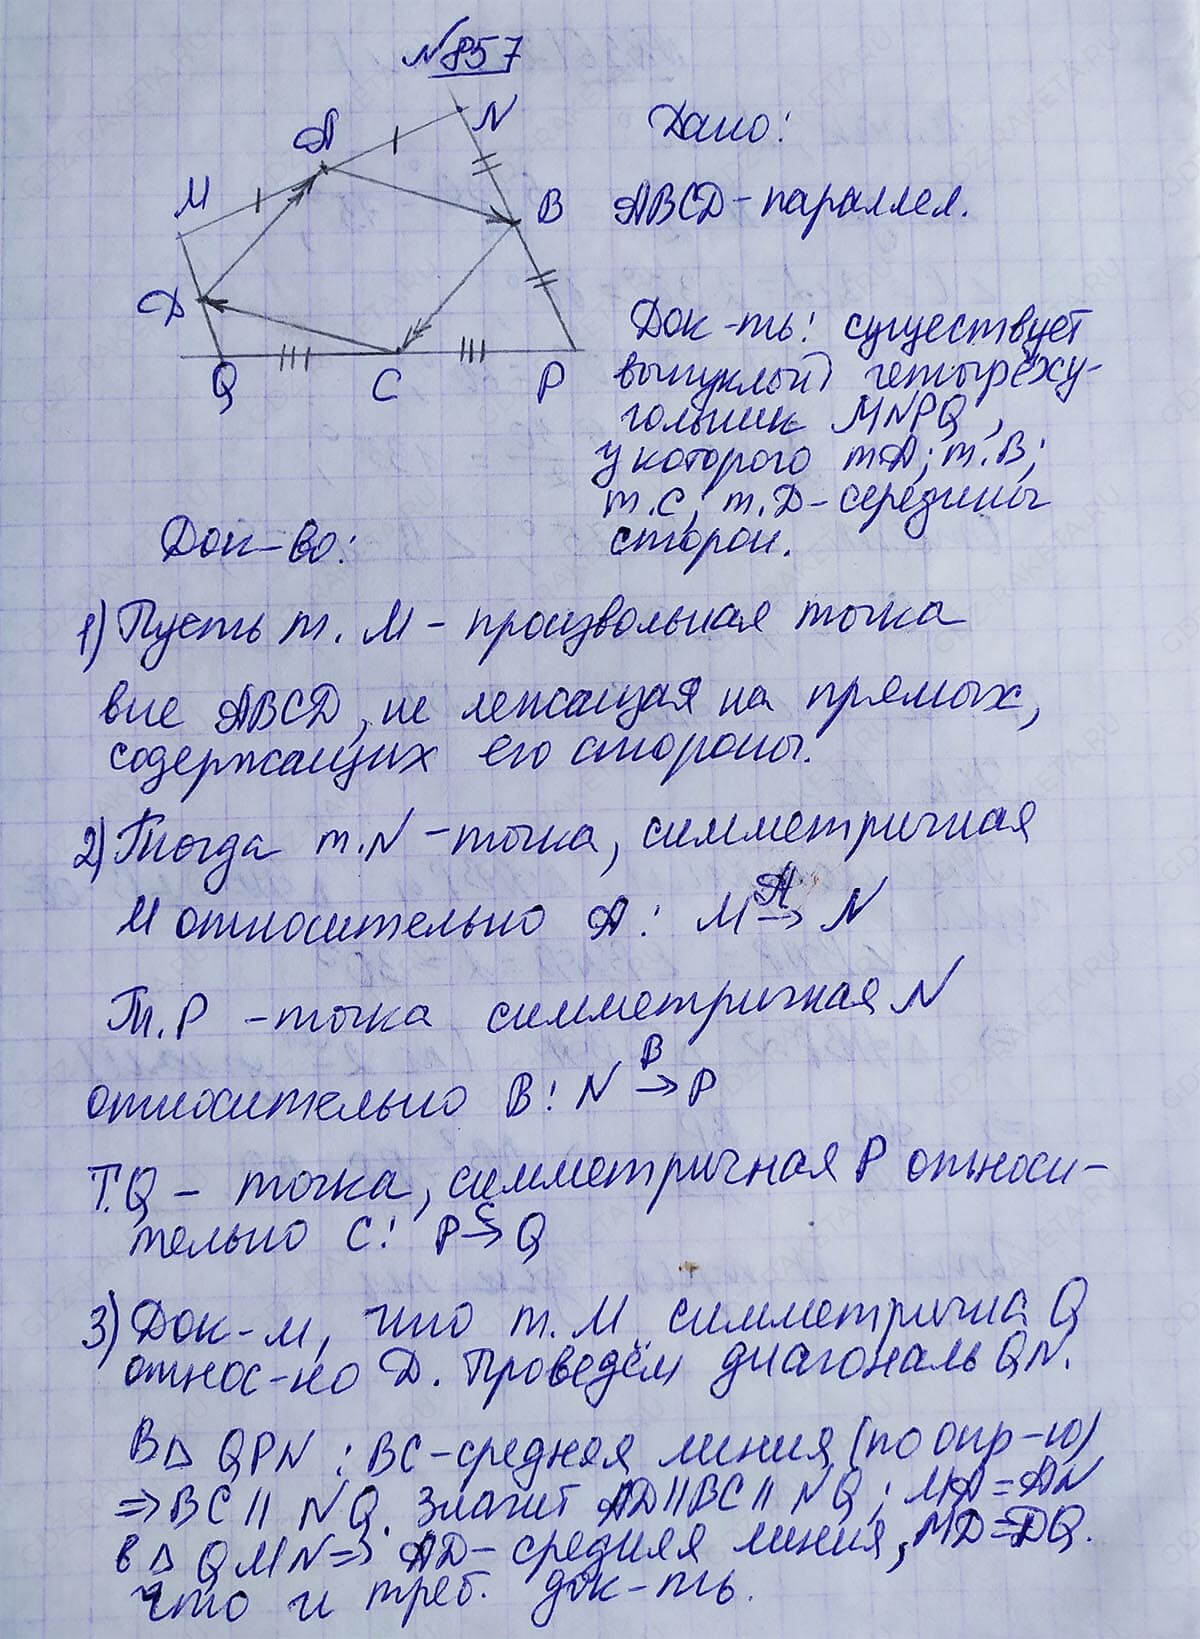 №857
N
A
M
B
D
Q
C
P
Дано:
ABCD - параллел.
Док-ть: существует
выпуклый четырёху-
гольник MNPQ,
у которого т.A; т.B;
т.C; т.D - середины
сторон.
Док-во:
1) Пусть т. M - произвольная точка
вне ABCD, не лежащая на прямых,
содержащих его стороны.
2) Тогда т.N - точка, симметричная
M относительно A: M →A N
Т.P - точка симметричная N
относительно B: N →B P
Т.Q - точка, симметричная P относи-
тельно C: P →C Q
3) Док-м, что т.M симметрична Q
относ-но D. Проведём диагональ QN.
В △ QPN: BC - средняя линия (по опр-ю)
⇒ BC || NQ. Значит AD || BC || NQ; MA = AN
в △ QMN ⇒ AD - средняя линия, MD = DQ.
Что и треб. док-ть.